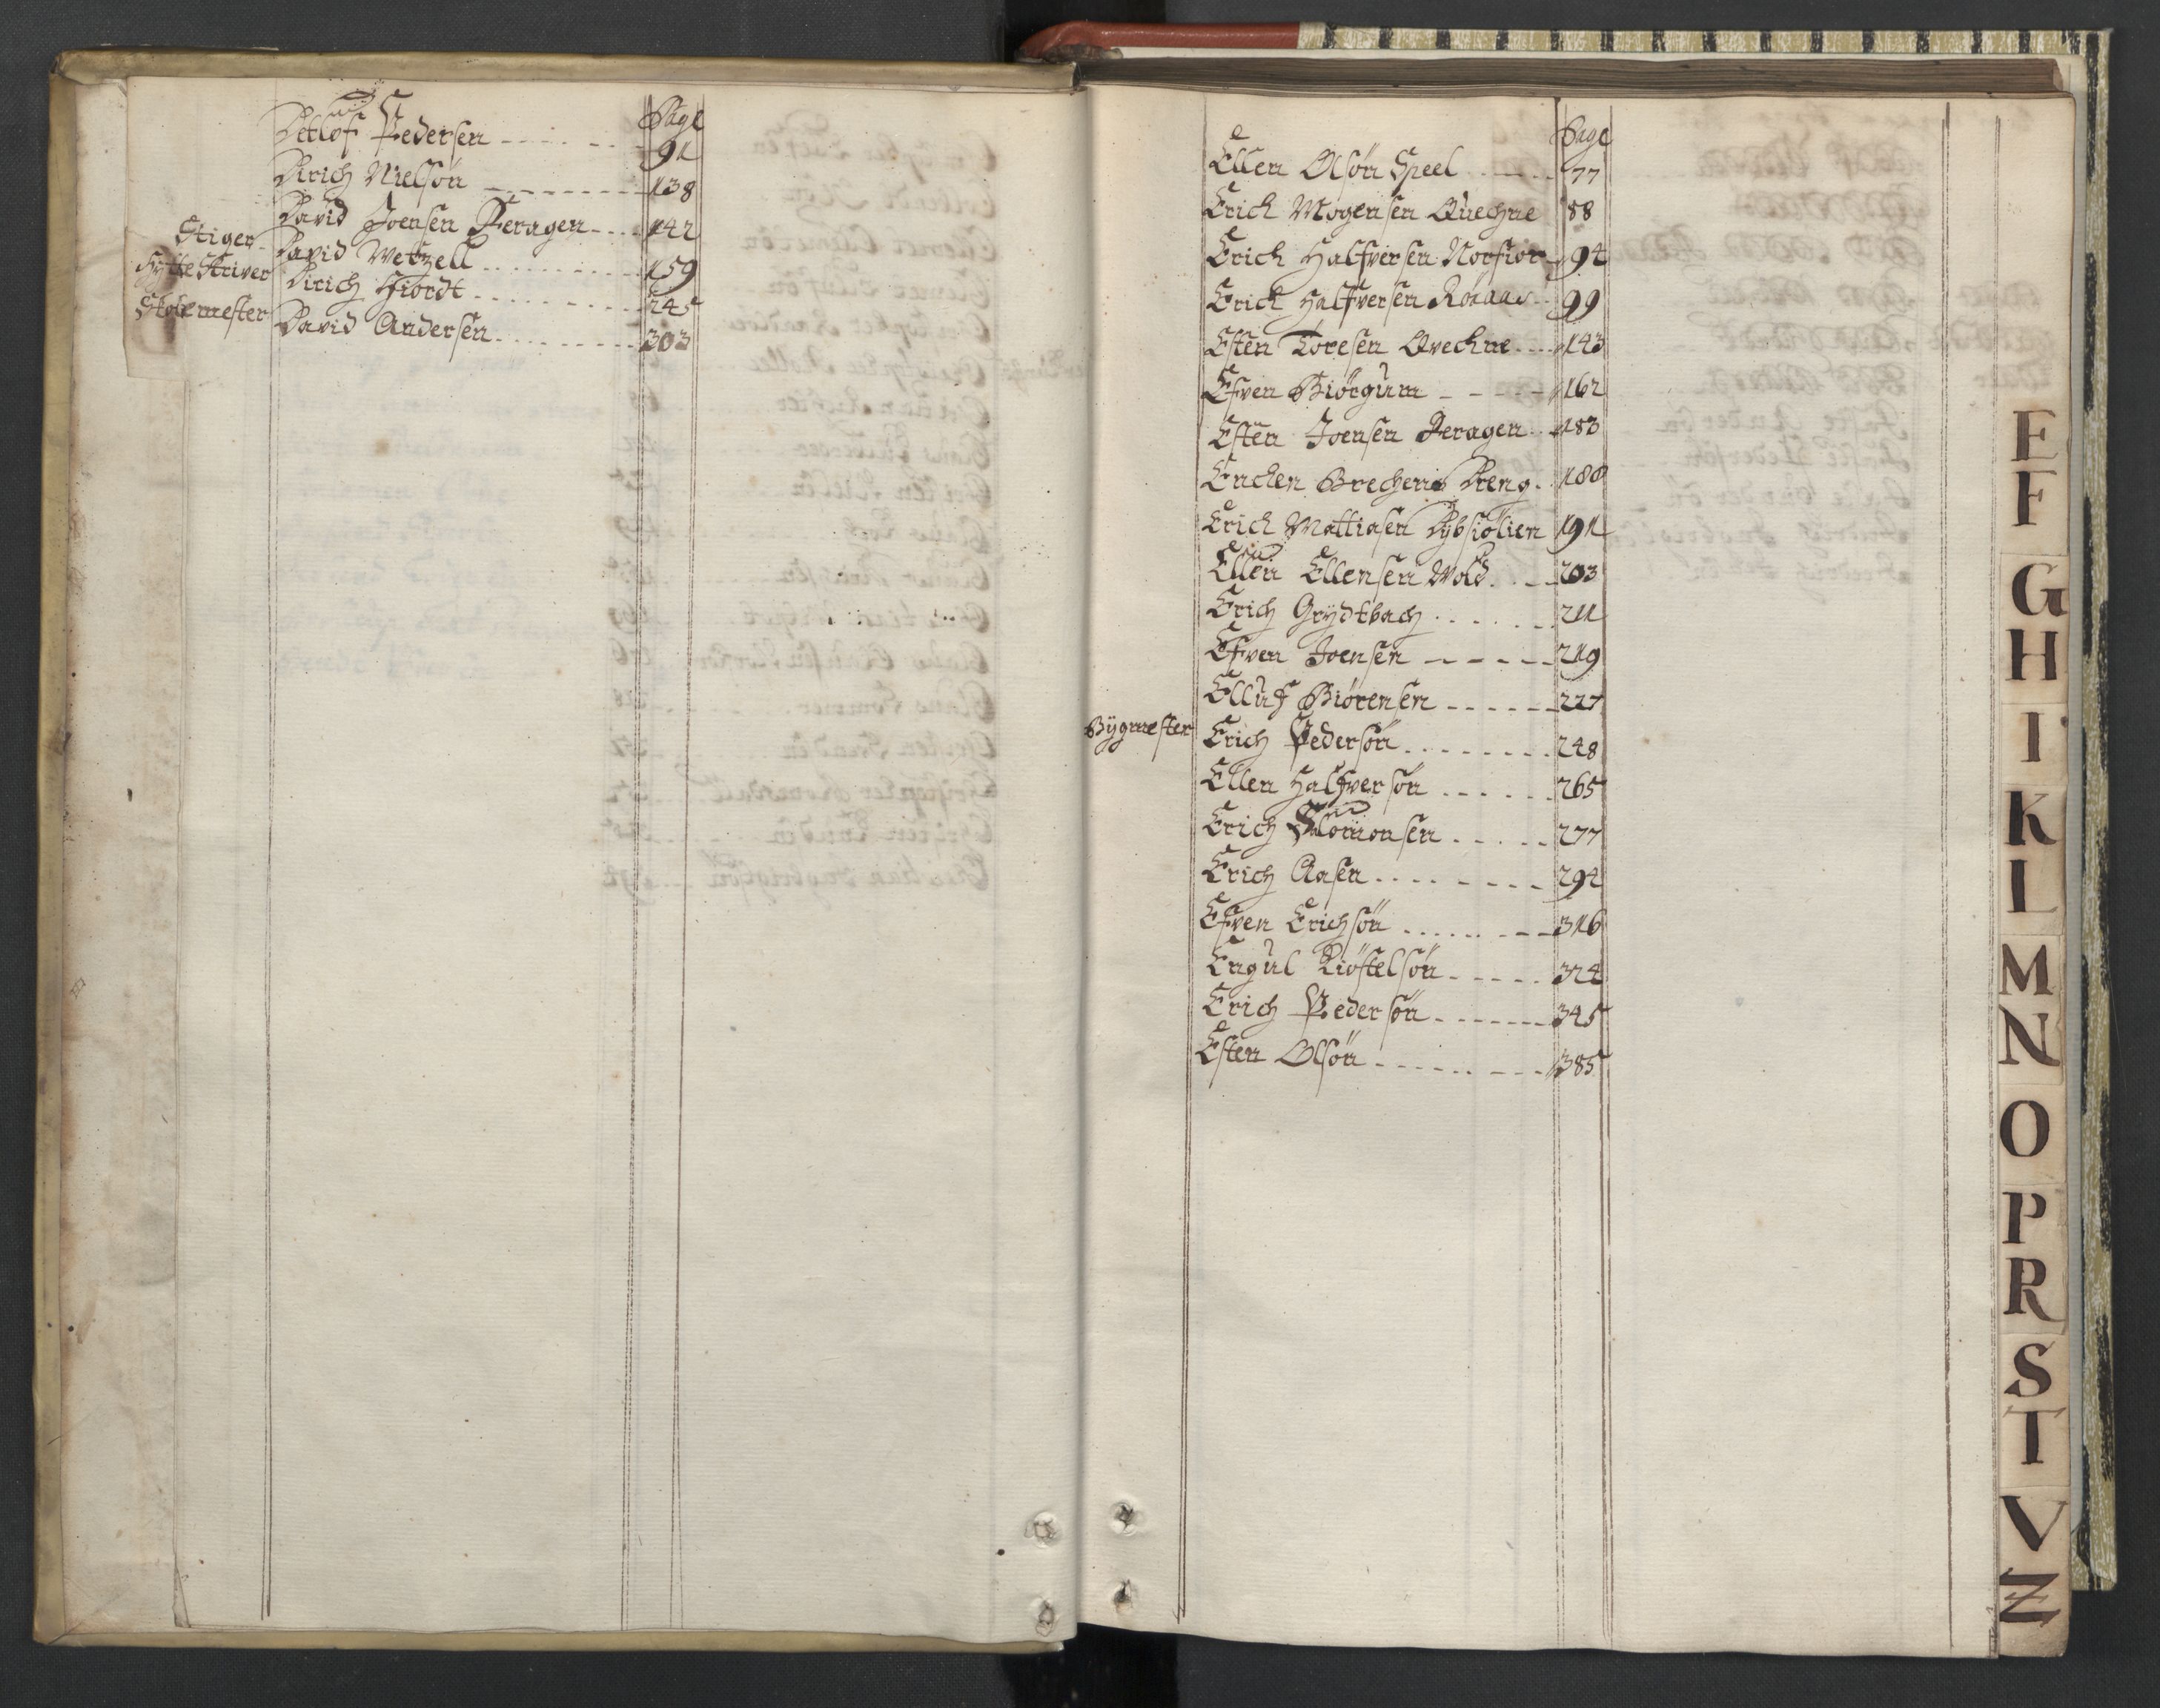 Page
Detlof Pedersen 91
Dirich Nielsön 138
David Joensen Feragen 142
Stiger David Wetzell 159
Hytteskriver Dirich Hiordt 245
David Andersen 303
Page
Ellen Olsön Speel 77
Erich Mogensen Quechne 88
Erich Halfversen 94
Erich Halfversen Röraas 99
Esten Toresen Qvechne 143
Efven Biörgum 162
Esten Joensen Feragen 183
Dreng 188
Erich Mattiasen 191
Ellen Ellensen Wold 203
Erich Grydtbach 211
Efven Joensen 219
Elluf Biörensen 227
Bygmester Erich Pedersön 248
Ellen Halfversön 265
Erich Salomonsen 277
Erich Aasen 294
Efven Erichsön 316
Engul Kiöstelsön 324
Erich Pedersön 345
Esten Olsön 385
E
F
G
H
I
K
L
M
N
O
P
R
S
T
V
Z